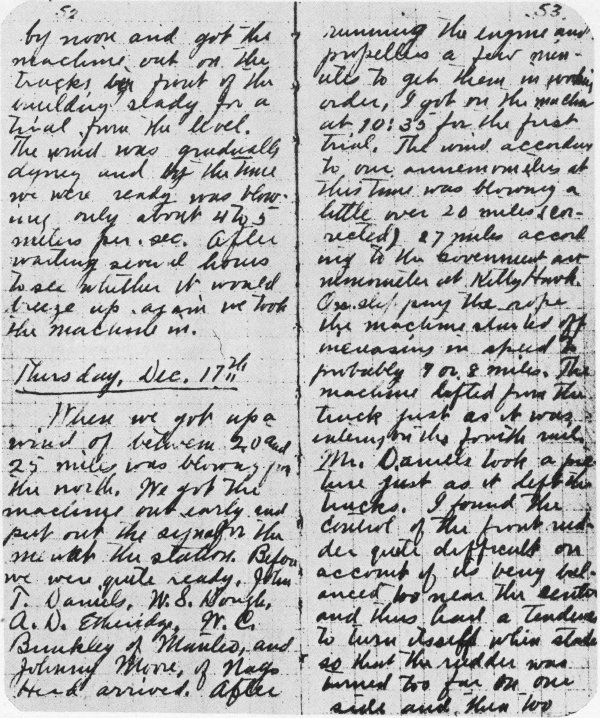 52
by noon and got the
machine out on the
tracks in front of the
building ready for a
trial from the level.
The wind was gradually
dyeing and by the time
we were ready was blow-
ing only about 4 to 5
meters per. sec. After
waiting several hours
to see whether it would
breeze up again we took
the machine in.
Thursday, Dec. 17th
When we got up a
wind of between 20 and
25 miles was blowing from
the north. We got the
machine out early and
put out the signal for the
men at the station. Before
we were quite ready, John
T. Daniels, W. S. Dough,
A. D. Etheridge, W. C.
Brinkley of Manteo, and
Johnny Moore, of Nags
Head arrived. After
53
running the engine and
propellers a few min-
utes to get them in working
order, I got on the machine
at 10:35 for the first
trial. The wind according
to our annemometers at
this time was blowing a
little over 20 miles (cor-
rected) 27 miles accord
ing to the Government an
nemometer at Kitty Hawk.
On slipping the rope
the machine started off
increasing in speed to
probably 7 or 8 miles. The
machine lifted from the
truck just as it was
entering on the fourth rail.
Mr. Daniels took a pic
ture just as it left the
tracks. I found the
control of the front rud-
der quite difficult on
account of its being bal-
anced too near the center
and thus had a tendency
to turn itself when started
so that the rudder was
turned too far on one
side and then too